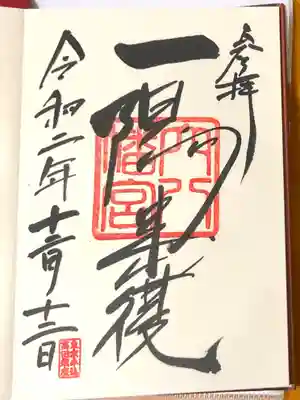 奉拝
一陽来復
穴八幡宮
令和二年十二月十二日